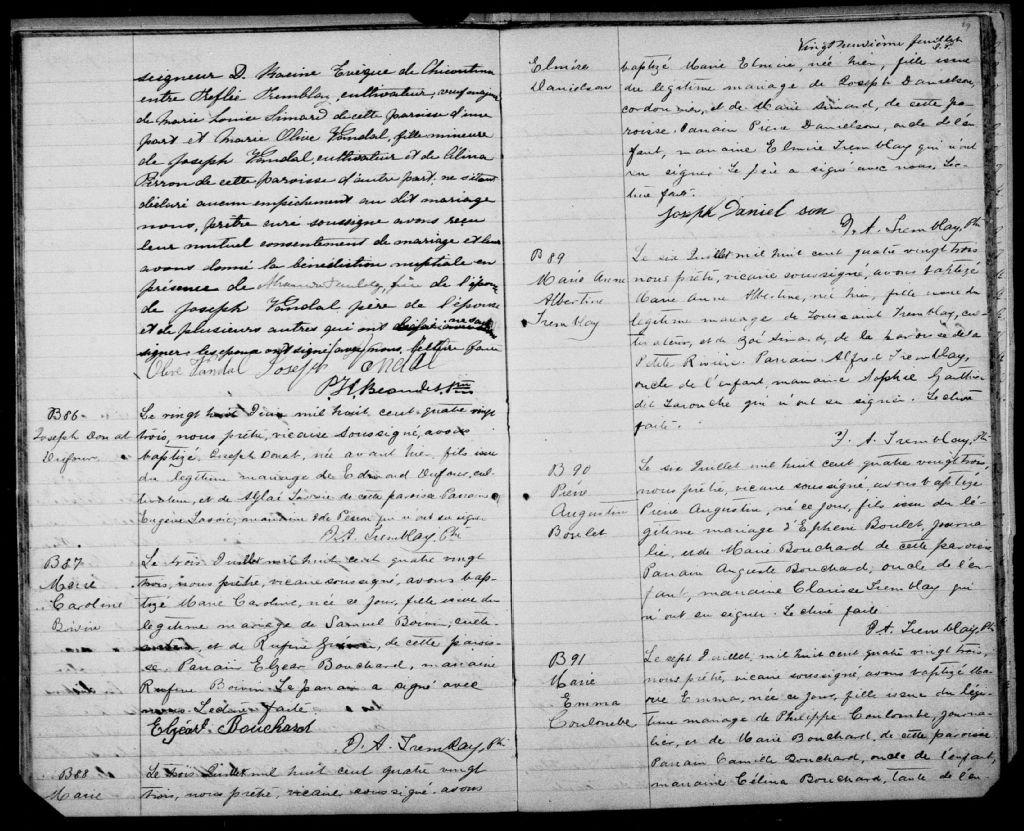 seigneur D. Racine Evêque de Chicoutimi
entre Kéflie Tremblay, cultivateur, veuf majeur
de Marie Louise Simard de cette paroisse d'une
part et Marie Olive Vandal, fille mineure
de Joseph Vandal, cultivateur et de Alina
Perron de cette paroisse d'autre part, ne s'étant
déclaré aucun empêchement au dit mariage
nous, prêtre curé soussigné avons reçu
leur mutuel consentement de mariage et leur
avons donné la bénédiction nuptiale en
présence de de l'époux
de Joseph Vandal, père de l'épouse
et de plusieurs autres qui ont
signer les époux ont signé avec nous. Lecture faite
Olive Vandal Joseph Vandal
B86
Joseph Donat
Dufour
Le vingt huit Juin mil huit cent quatre vingt
trois, nous prêtre, vicaire soussigné, avons
baptizé Joseph Donat, née avant hier, fils issu
du legitime mariage de Edmond Dufour, cul-
tivateur, et de Aglaé Savoie de cette paroisse Parrain
Eugène Savoie, marraine Perron qui n'ont su signer
D. A. Tremblay, Ptr
B87
Marie
Caroline
Boivin
Le trois Juillet mil huit cent quatre vingt
trois, nous prêtre, vicaire soussigné, avons bap-
tizé Marie Caroline, née ce jour, fille issue du
legitime mariage de Samuel Boivin,
et de Rufine de cette parois-
se. Parrain Elzear Bouchard, marraine
Rufine Boivin. Le parrain a signé avec
nous. Lecture faite
Elzéar Bouchard
D. A. Tremblay, Ptr
B88
Marie
Le trois Juillet mil huit cent quatre vingt
trois, nous prêtre, vicaire soussigné avons
Vingt neuvième feuillet
Elmire
Danielson
baptizé Marie Elmire, née hier, fille issue
du legitime mariage de Joseph Danielson,
cordonnier, et de Marie Simard, de cette pa-
roisse, Parrain Pierre Danielson, oncle de l'en-
fant, marraine Elmire Tremblay qui n'ont
su signer. Le père a signé avec nous, Lec-
ture faite.
Joseph Daniel son
D. A. Tremblay, Ptr
B 89
Marie Anne
Albertine
Tremblay
Le six Juillet mil huit cent quatre vingt trois
nous prêtre, vicaire soussigné, avons baptizé
Marie Anne Albertine, née hier, fille issue du
legitime mariage de Toussaint Tremblay, cul-
tivateur, et de Zoé Simard, de la paroisse de la
Petite Rivière. Parrain Alfred Tremblay,
oncle de l'enfant, marraine Sophie Gauthier
dit Larouche qui n'ont su signer. Lecture
faite.
D. A. Tremblay, Ptr
B 90
Pierre
Augustin
Boulet
Le six Juillet mil huit cent quatre vingt trois,
nous prêtre, vicaire soussigné, avons baptizé
Pierre Augustin, né ce jour, fils issu du lé-
gitime mariage d'Ephrem Boulet, journa-
lier, et de Marie Bouchard de cette paroisse
Parrain Auguste Bouchard, oncle de l'en-
fant, marraine Clarisse Tremblay qui
n'ont su signer. Lecture faite
D. A. Tremblay, Ptr
B 91
Marie
Emma
Coulombe
Le sept Juillet, mil huit cent quatre vingt trois,
nous prêtre, vicaire soussigné, avons baptizé Ma-
rie Emma, née ce jour, fille issue du légi-
time mariage de Philippe Coulombe, journa-
lier, et de Marie Bouchard, de cette paroisse
Parrain Camille Bouchard, oncle de l'enfant,
marraine Célina Bouchard, tante de l'en-